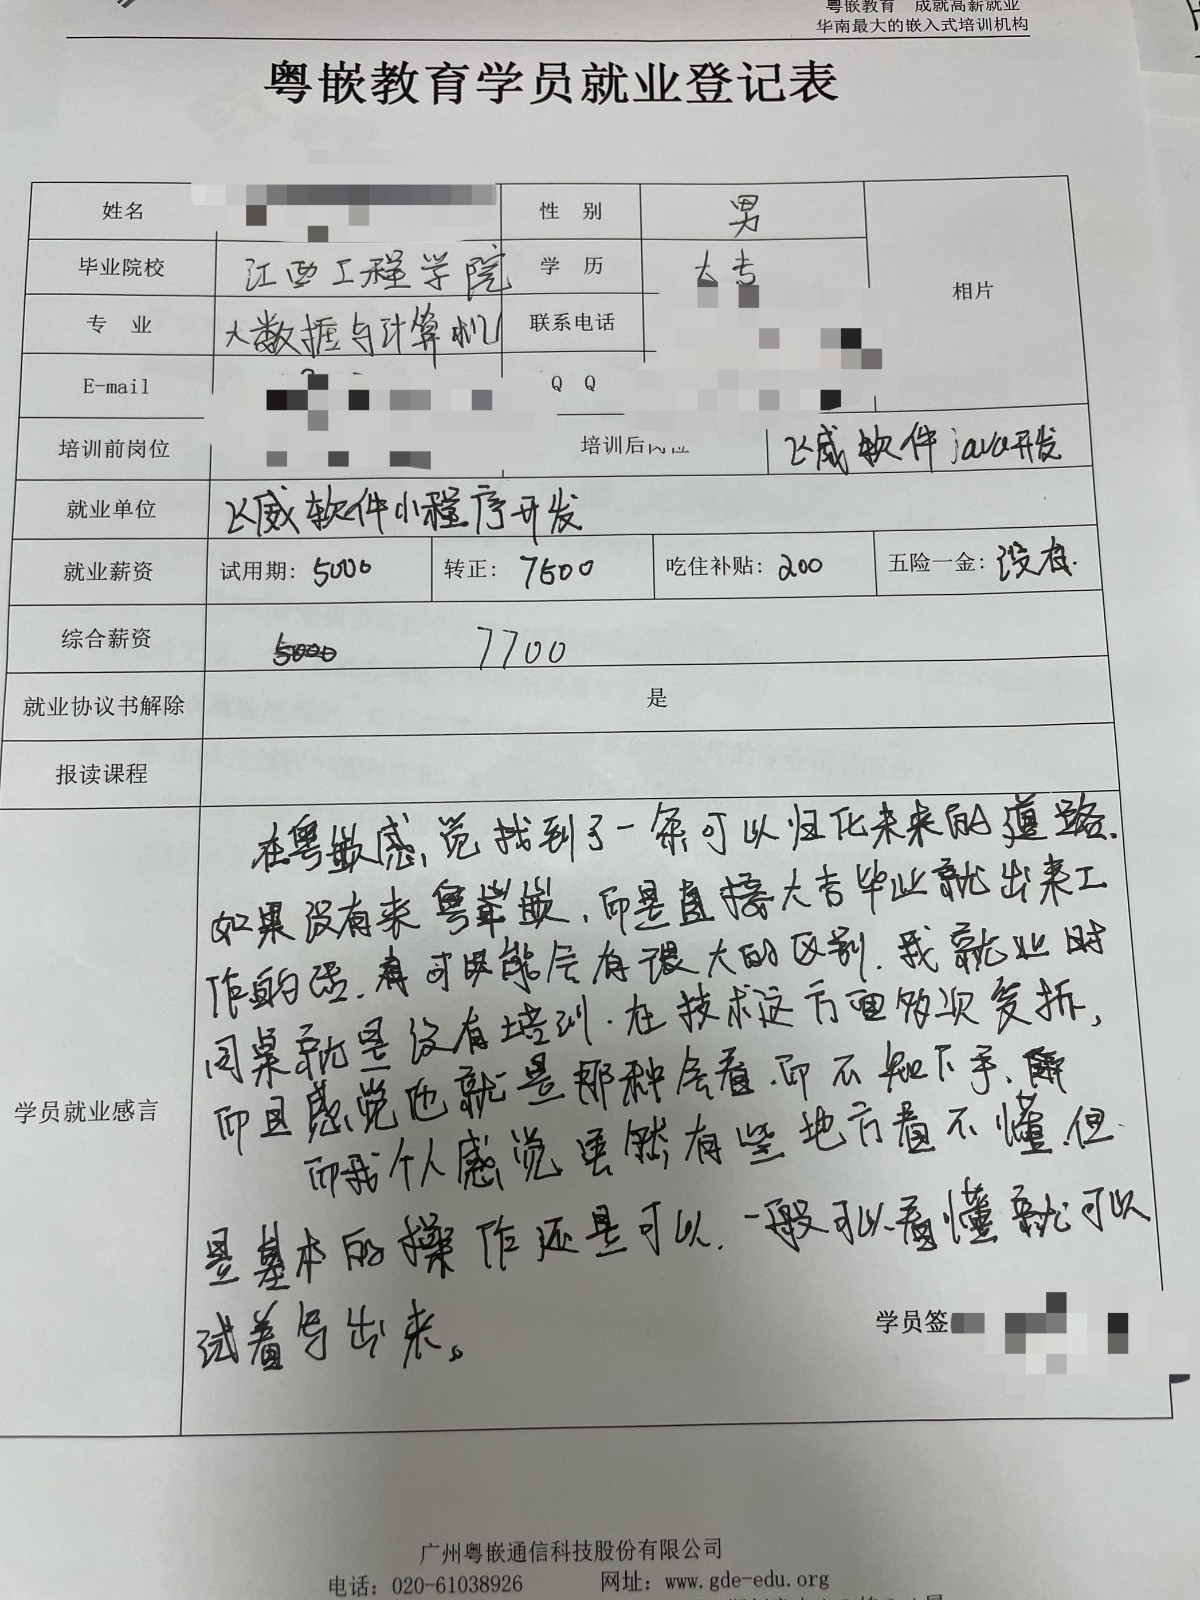 粤嵌教育 成就高薪就业
华南最大的嵌入式培训机构
粤嵌教育学员就业登记表
姓名 性 别 男 相片
毕业院校 江西工程学院 学 历 大专
专 业 大数据与计算机 联系电话
E-mail Q Q
培训前岗位 培训后岗位 飞威软件java开发
就业单位 飞威软件小程序开发
就业薪资 试用期: 5000 转正: 7500 吃住补贴: 200 五险一金: 没有.
综合薪资 5000 7700
就业协议书解除 是
报读课程
学员就业感言
在粤嵌感觉找到了一条可以归化未来的道路.
如果没有来粤嵌,而是直接大专毕业就出来工
作的话.有可能会有很大的区别.我就业时
同桌就是没有培训.在技术这方面多次复拆,
而且感觉也就是那种会看.而不知下手、
而我个人感觉虽然有些地方看不懂.但
是基本的操作还是可以.一般可以看懂就可以
试着写出来。
学员签
广州粤嵌通信科技股份有限公司
电话: 020-61038926 网址: www.gde-edu.org